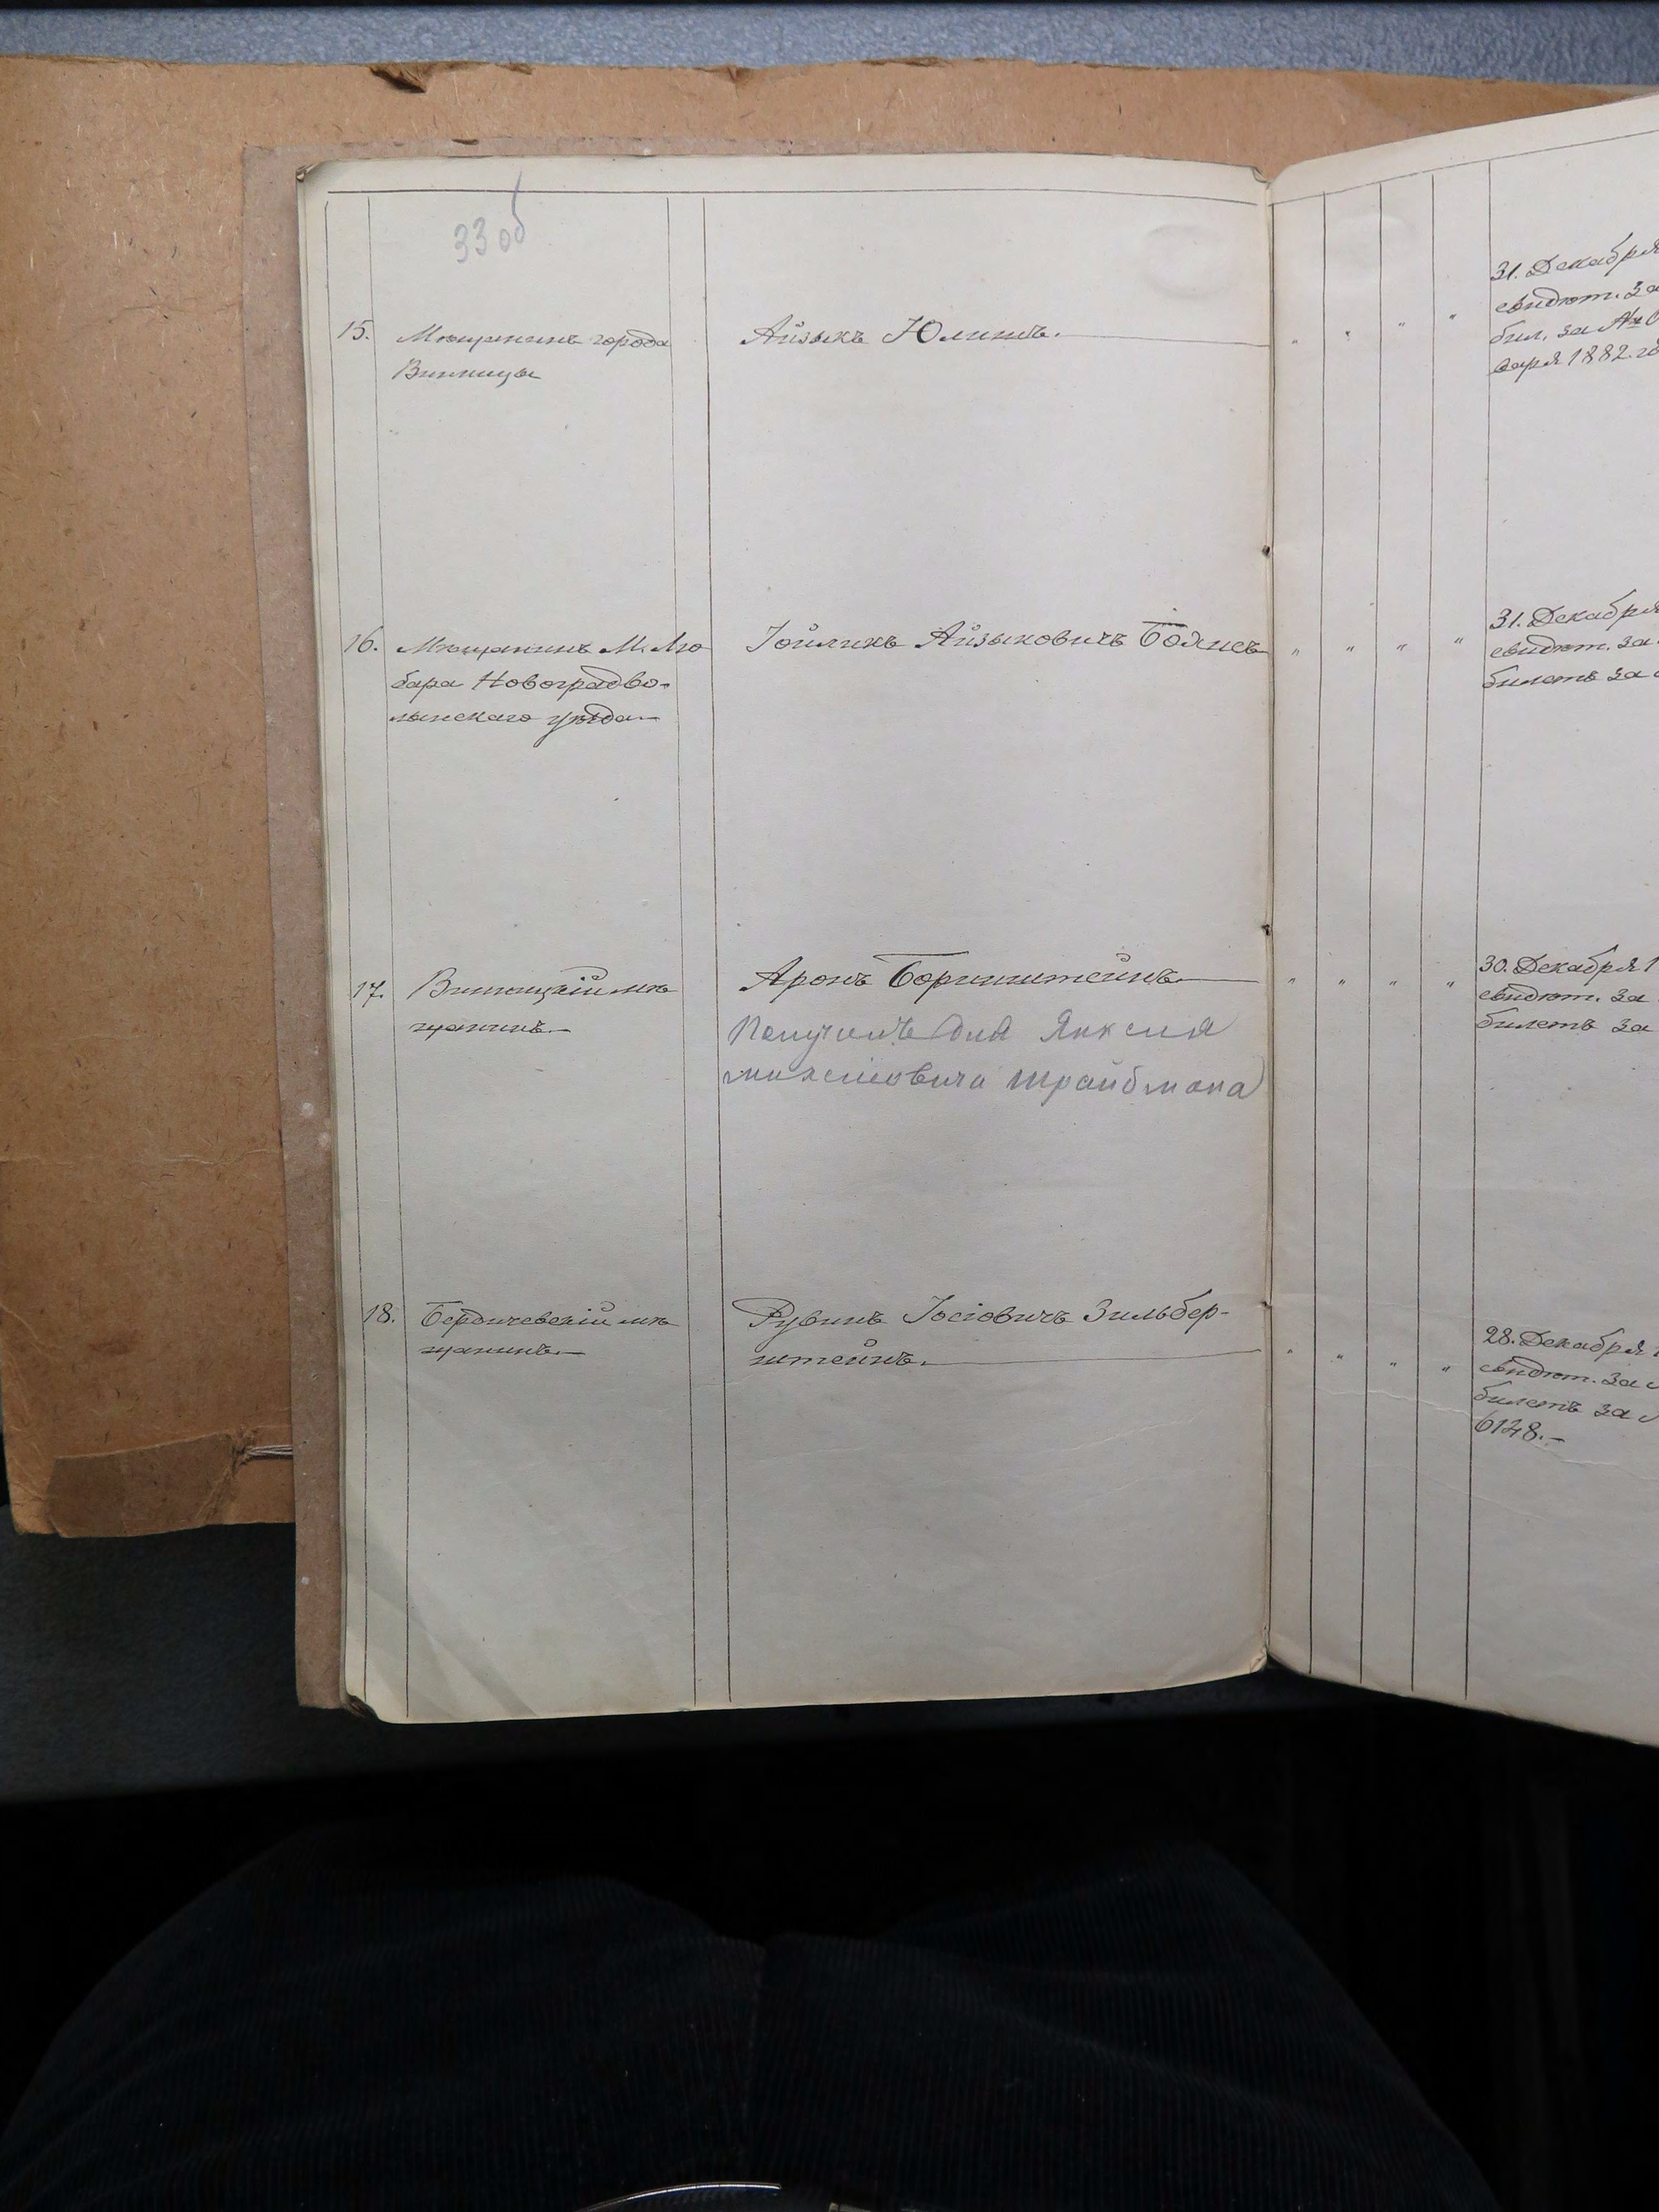 33 об
15. Мѣщанинъ города
Винницы
Айзыкъ Юлишъ.
31. Декабря
свидѣт. за
бил. за №
варя 1882. го
16. Мѣщанинъ М. Лю
бара Новоградво-
лынскаго уѣзда
Айзыковичъ
31. Декабря
свидѣт. за
билетъ за
17. Винницкій мѣ
щанинъ
Аронъ Боринштейнъ
Получилъ для Янкеля
Трайбмана
30. Декабря 1
свидѣт. за
билетъ за
18. Бердичевскій мѣ
щанинъ
Рувинъ Іосіовичъ Зильбер-
штейнъ.
28. Декабря
свидѣт. за
билетъ за